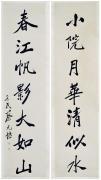 小院月華清似水
春江帆影大如山